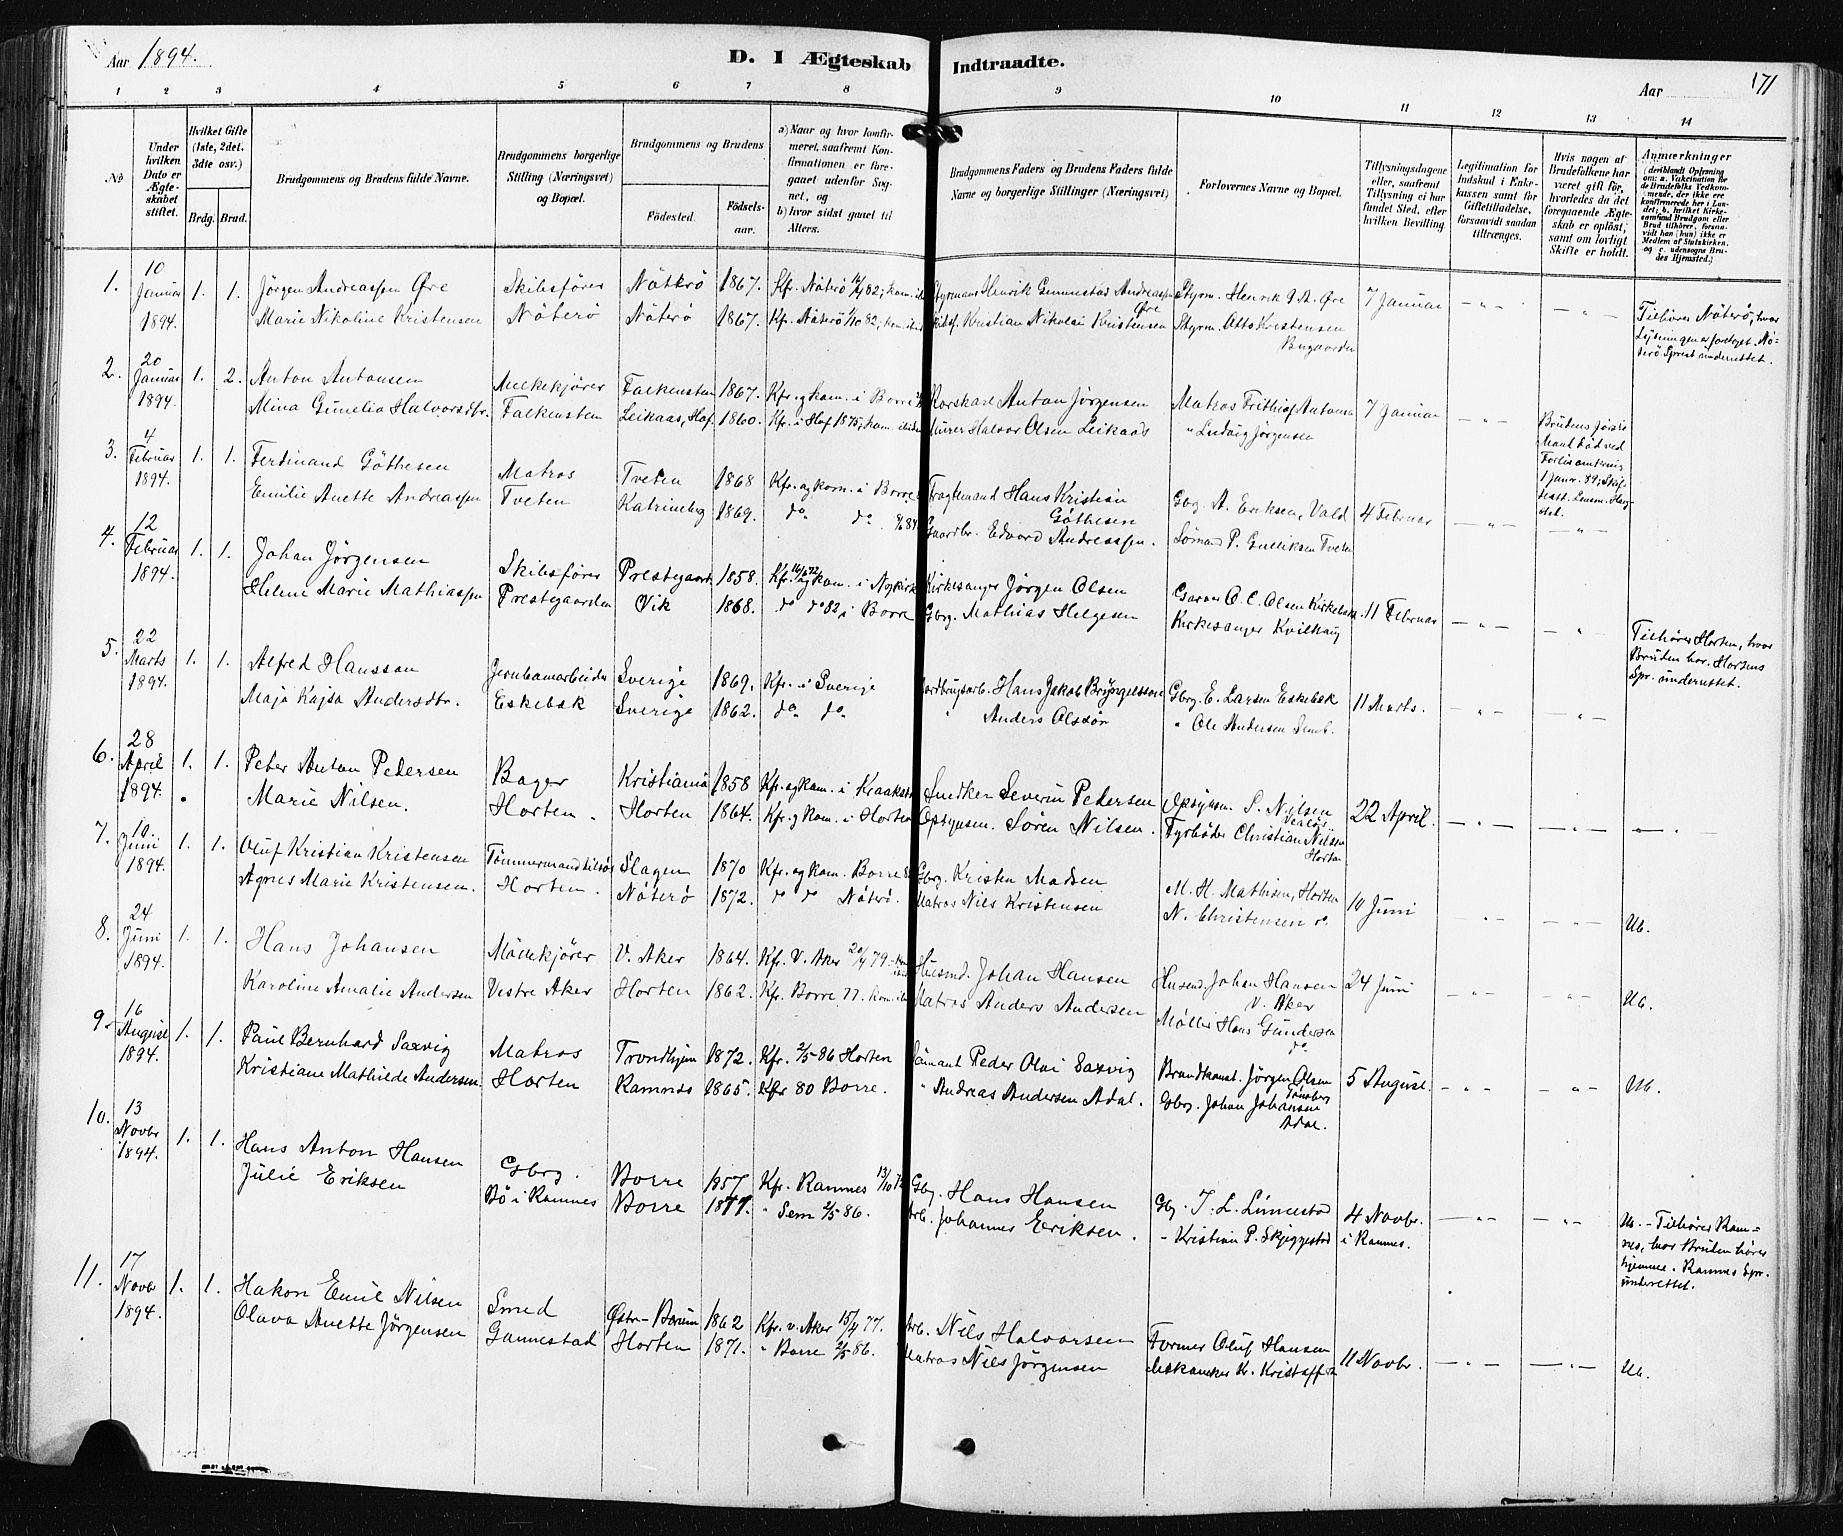 Aar 1894.
D. I Ægteskab Indtraadte.
Aar 171
1 2 3 4 5 6 7 8 9 10 11 12 13 14
No
Under hvilken Dato er Ægteskabet stiftet.
Hvilket Gifte (1ste, 2det, 3die osv.)
Brdg. Brud.
Brudgommens og Brudens fulde Navne.
Brudgommens borgerlige Stilling (Næringsvei) og Bopæl.
Brudgommens og Brudens
Fødested.
Fødselsaar.
a) Naar og hvor konfirmeret, saafremt Konfirmationen er foregaaet udenfor Sognet, og
b) hvor sidst gaaet til Alters.
Brudgommens Faders og Brudens Faders fulde Navne og borgerlige Stillinger (Næringsvei)
Forlovernes Navne og Bopæl.
Tillysningsdagene eller, saafremt Tillysning ei har fundet Sted, efter hvilken Bevilling.
Legitimation for Indskud i Enkekassen samt for Giftetilladelse, forsaavidt saadan tiltrænges.
Hvis nogen af Brudefolkene har været gift før, hvorledes da det foregaaende Ægteskab er opløst, samt om lovligt Skifte er holdt.
Anmærkninger
1. 10 Januar 1894. 1. 1. Jørgen Andreassen Øre Skibsfører Nøtterø 1867. Kfr. Nøterø
Styrmand Henrik Gunnestad Andreassen Øre Styrm. Henrik G. A. Øre 7 Januar — " —
Marie Nikoline Kristensen Nøterø Nøterø 1867. Kfr. Nøterø 1/10 82; kom. ibid
Kristian Nikolai Kristensen Styrm. Otto Kristensen
Tilhører Nøterø, hvor Lysningen er foretaget. Nøterø Sprst underrettet.
2. 20 Januar 1894. 1. 2. Anton Antonsen Melkekjører Falkensten 1867. Kfr. og kom. i Borre
Anton Jørgensen Matros Frithjof Antons 7 Januar — " —
Mina Gunelia Halvorsdtr. Falkensten Leikaas, Hof. 1860. Kfr. i Hof 1875; kom. ibidem
Murer Halvor Olsen Leikaas " Ludvig Jørgensen
Brudens første Mand død ved Forlis omkring 1 Janr. 89;
3. 4 Februar 1894. 1. 1. Ferdinand Göthesen Matros Tveten 1868 Kfr. og kom. i Borre
Hans Kristian Göthesen Gbrg. A. Eriksen, Vold 4 Februar — " — — " —
Emilie Anette Andreassen Tveten Katrineberg 1869. do do
Gaardbr. Edvard Andreassen. Sømand P. Gulliksen Tveten
4. 12 Februar 1894. 1. 1. Johan Jørgensen Skibsfører Prestegaarden 1858. Kfr. og kom. i Nykirke
Kirkesanger Jørgen Olsen Garver O. C. Olsen 11 Februar — " — — " —
Helene Marie Mathiassen Prestegaarden Vik 1868. do do 82 i Borre
Gbrg. Mathias Helgesen Kirkesanger Kvilhaug
5. 22 Marts 1894. 1. 1. Alfred Hansson Jernbanarbeider Sverige 1869. Kfr. i Sverige
Jordbrugsarb. Hans Jakob Gbrg. E. Larsen Eskebæk 11 Marts. — " — — " —
Maja Kajsa Andersdtr. Eskebæk Sverige 1862. do do
" Anders Olsson " Ole Andersen Semb.
Tilhører Horten, hvor Bruden bor. Hortens Spr. underrettet.
6. 28 April 1894. 1. 1. Peter Anton Pedersen Bager Kristiania 1858 Kfr. og kom. i
Snedker Severin Pedersen Opsynsm. S. Nilsen 22 April. — " — — " — — " —
Marie Nilsen. Horten. Horten 1864. Kfr. og kom. i Horten
Opsynsm. Søren Nilsen. Fyrbøder Christian Nilsen Horten
7. 10. Juni 1894. 1. 1. Oluf Kristian Kristensen Tømmermand Slagen 1870 Kfr. og kom. Borre
Gbrg. Kristen Madsen M. H. Mathisen, Horten 10 Juni — " — — " — Ub.
Agnes Marie Kristensen. Horten. Nøterø 1872. do do Nøterø.
Matros Nils Kristensen N. Christensen do.
8. 24 Juni 1894. 1. 1. Hans Johansen Møllekjører V. Aker 1864. Kfr. V. Aker 20/4 79.
Husmd. Johan Hansen Husmd. Johan Hansen V. Aker 24 Juni — " — — " — Ub.
Karoline Amalie Andersen Vestre Aker Horten 1862. Kfr. Borre 77. kom. ibid
Matros Anders Andersen Møller Hans Gundersen do.
9. 16 August 1894. 1. 1. Paul Bernhard Saxvig Matros Trondhjem 1872. Kfr. 2/5 86 Horten
Sømand Peder Olai Saxvig Brandkonst. Jørgen Olsen Tønsberg 5 August. — " — — " — Ub.
Kristiane Mathilde Andersen. Horten Ramnes 1865. Kfr 80 Borre.
" Andreas Andersen Adal. Gbrg. Johan Johansen Adal.
10. 13 Novbr 1894. 1. 1. Hans Anton Hansen Gbrg. Borre 1857 Kfr. Ramnes
Gbrg. Hans Hansen Gbrg. T. L. Linnestad 4 Novbr. i Ramnes. — " — — " —
Julie Eriksen Bø i Ramnes Borre 1871. " Sem 2/5 86.
Arb. Johannes Eriksen. - Kristian P. Skjeggestad
Ub. - Tilhører Ramnes, hvor Bruden hører hjemme. Ramnes Spr. underrettet.
11. 17 Novbr 1894. 1. 1. Hakon Emil Nilsen Smed Østr-Bærum 1862 Kfr. v. Aker 15/4 77.
Arb. Nils Halvorsen Former Oluf Hansen 11 Novbr. — " — — " — Ub.
Olava Anette Jørgensen Gannestad Horten 1871. " Borre 2/5 86.
Matros Nils Jørgensen